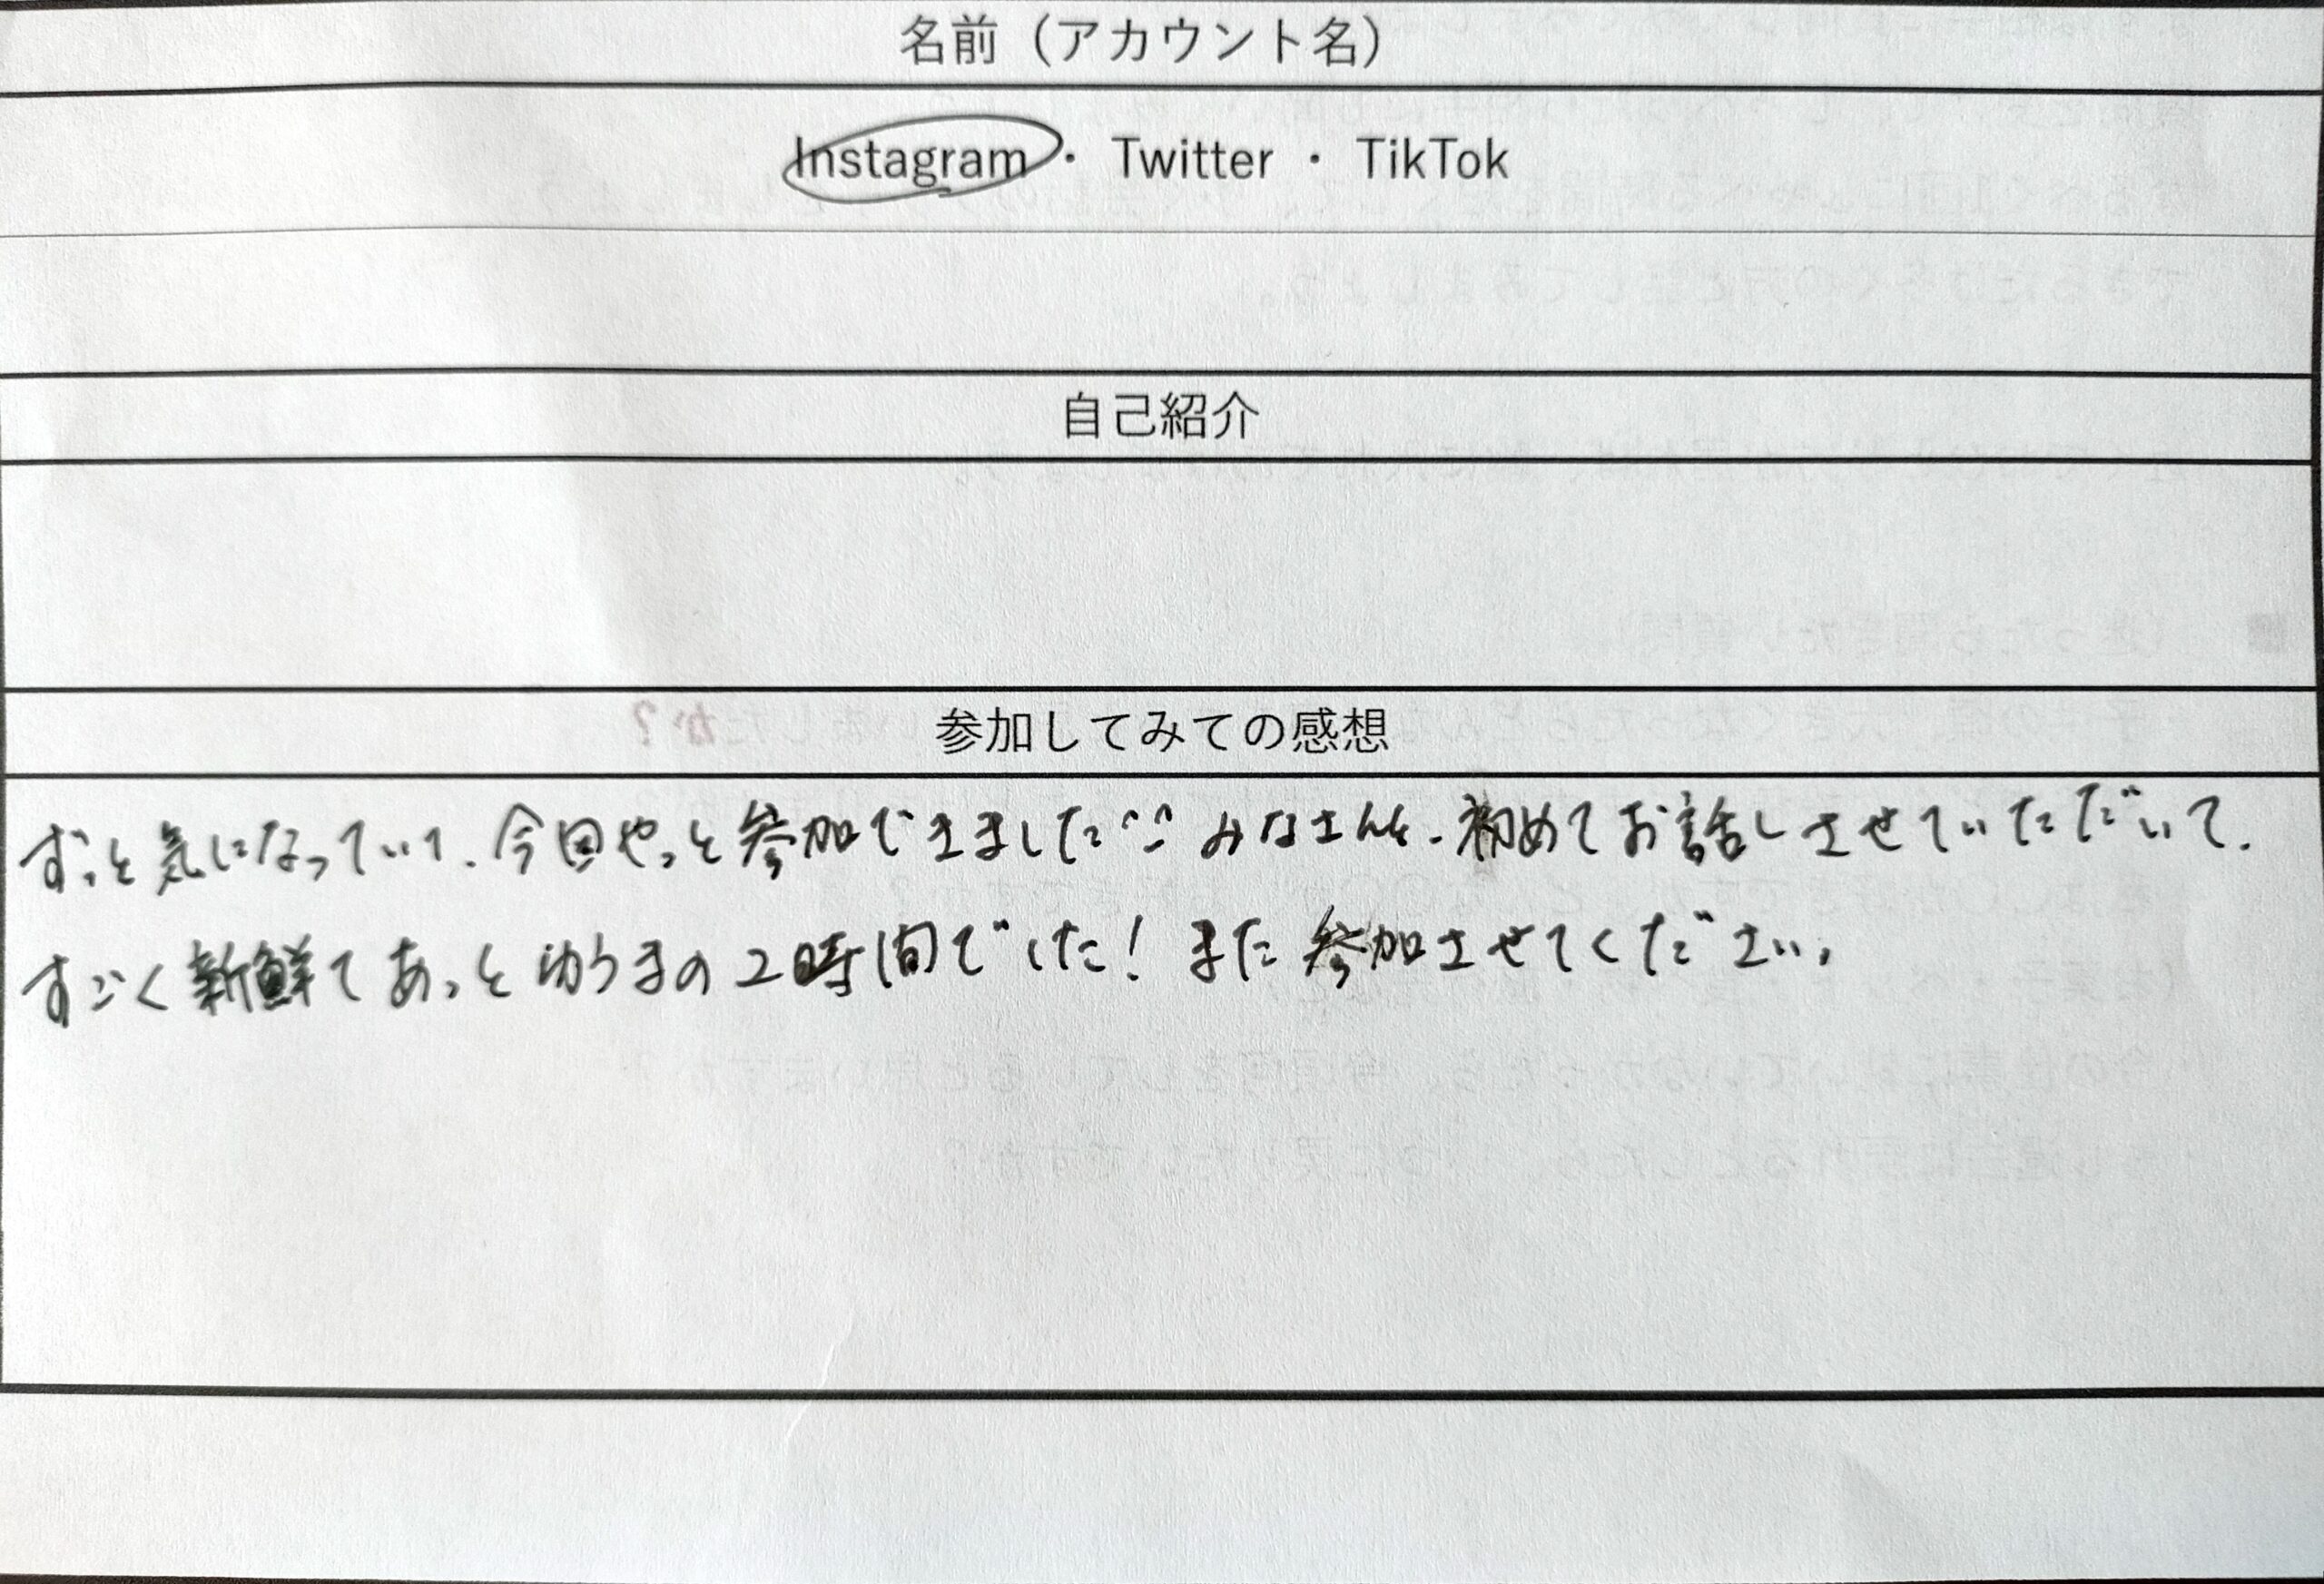 名前（アカウント名）
Instagram ・ Twitter ・ TikTok
自己紹介
参加してみての感想
ずっと気になっていて、今回やっと参加できました^^ みなさんと、初めてお話しさせていただいて、
すごく新鮮であっとゆうまの2時間でした！また参加させてください。